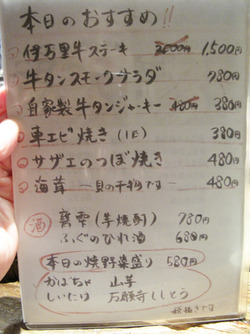 本日のおすすめ!!
伊万里牛ステーキ 2000円 1,500円
牛タンスモークサラダ 780円
自家製牛タンジャーキー 480円 380円
車エビ焼き(1匹) 380円
サザエのつぼ焼き 480円
海茸 ー貝の干物ですー 480円
酒 甕雫(芋焼酎) 780円
ふぐのひれ酒 680円
本日の焼野菜盛り 580円
かぼちゃ 山芋
しいたけ 万願寺ししとう
税抜きです